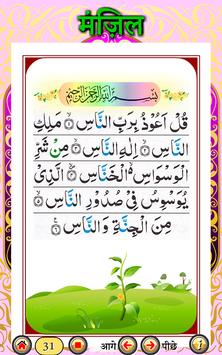 मंज़िल
بِسْمِ اللّٰهِ الرَّحْمٰنِ الرَّحِيْمِ
قُلْ اَعُوْذُ بِرَبِّ النَّاسِ ۝ مَلِكِ
النَّاسِ ۝ اِلٰهِ النَّاسِ ۝ مِنْ شَرِّ
الْوَسْوَاسِ ۙ الْخَنَّاسِ ۝ الَّذِيْ
يُوَسْوِسُ فِيْ صُدُوْرِ النَّاسِ ۝
مِنَ الْجِنَّةِ وَ النَّاسِ ۝
31 आगे पीछे i